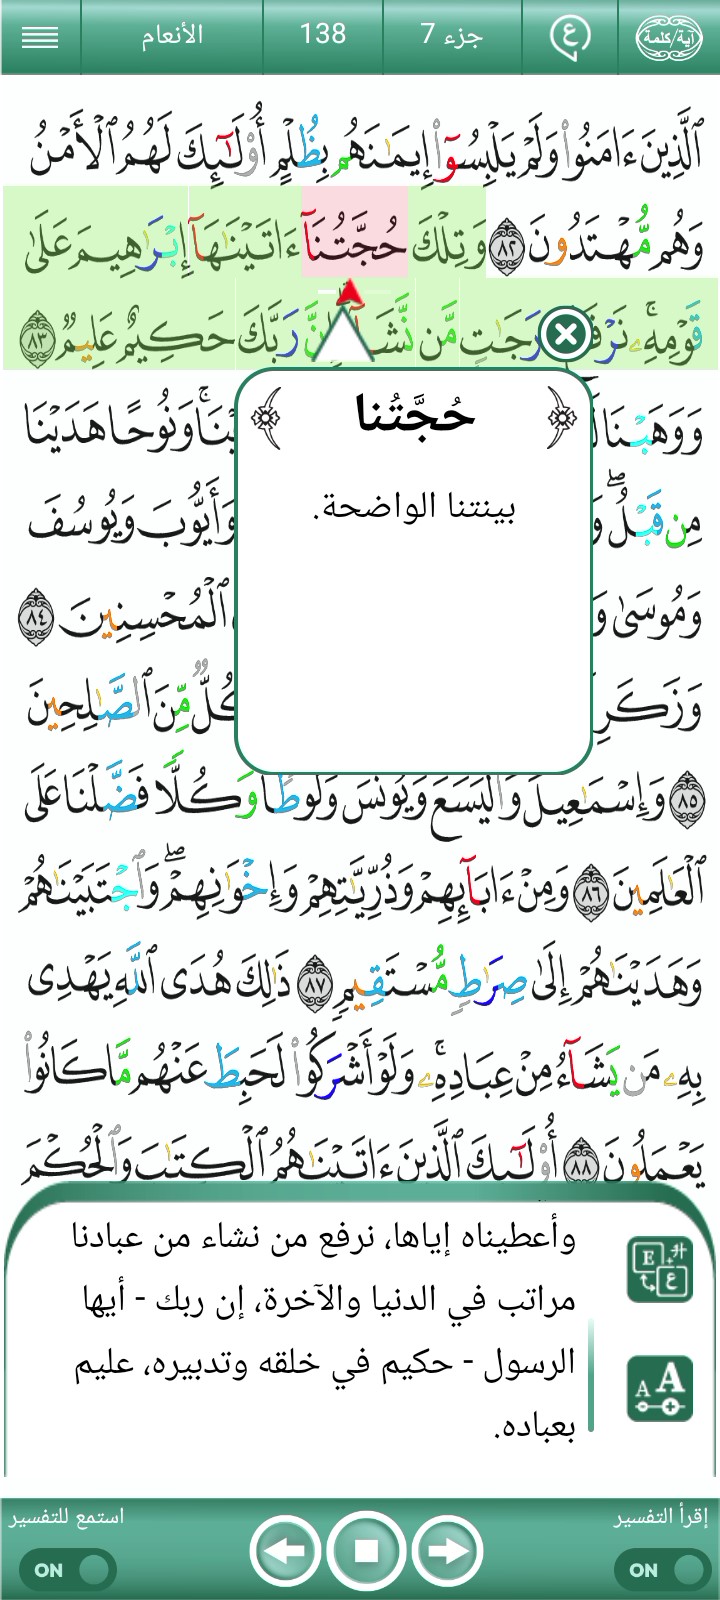 آية/كلمة
ع
جزء 7
138
الأنعام
ٱلَّذِينَ ءَامَنُوا۟ وَلَمْ يَلْبِسُوٓا۟ إِيمَـٰنَهُم بِظُلْمٍ أُو۟لَـٰٓئِكَ لَهُمُ ٱلْأَمْنُ
وَهُم مُّهْتَدُونَ ٨٢ وَتِلْكَ حُجَّتُنَآ ءَاتَيْنَـٰهَآ إِبْرَٰهِيمَ عَلَىٰ
قَوْمِهِۦ ۚ دَرَجَـٰتٍ مَّن نَّشَآ رَبَّكَ حَكِيمٌ عَلِيمٌ ٨٣
حُجَّتُنا
بينتنا الواضحة.
وَوَهَبْنَا وَنُوحًا هَدَيْنَا
مِن قَبْلُ ۖ وَأَيُّوبَ وَيُوسُفَ
وَمُوسَىٰ ٱلْمُحْسِنِينَ ٨٤
كُلٌّ مِّنَ ٱلصَّـٰلِحِينَ
٨٥ وَإِسْمَـٰعِيلَ وَٱلْيَسَعَ وَيُونُسَ وَلُوطًا ۚ وَكُلًّا فَضَّلْنَا عَلَى
ٱلْعَـٰلَمِينَ ٨٦ وَمِنْ ءَابَآئِهِمْ وَذُرِّيَّـٰتِهِمْ وَإِخْوَٰنِهِمْ ۖ وَٱجْتَبَيْنَـٰهُمْ
وَهَدَيْنَـٰهُمْ إِلَىٰ صِرَٰطٍ مُّسْتَقِيمٍ ٨٧ ذَٰلِكَ هُدَى ٱللَّهِ يَهْدِى
بِهِۦ مَن يَشَآءُ مِنْ عِبَادِهِۦ ۚ وَلَوْ أَشْرَكُوا۟ لَحَبِطَ عَنْهُم مَّا كَانُوا۟
يَعْمَلُونَ ٨٨ أُو۟لَـٰٓئِكَ ٱلَّذِينَ ءَاتَيْنَـٰهُمُ ٱلْكِتَـٰبَ وَٱلْحُكْمَ
وأعطيناه إياها، نرفع من نشاء من عبادنا
مراتب في الدنيا والآخرة، إن ربك - أيها
الرسول - حكيم في خلقه وتدبيره، عليم
بعباده.
E ع
A A
إقرأ التفسير
استمع للتفسير
ON
ON